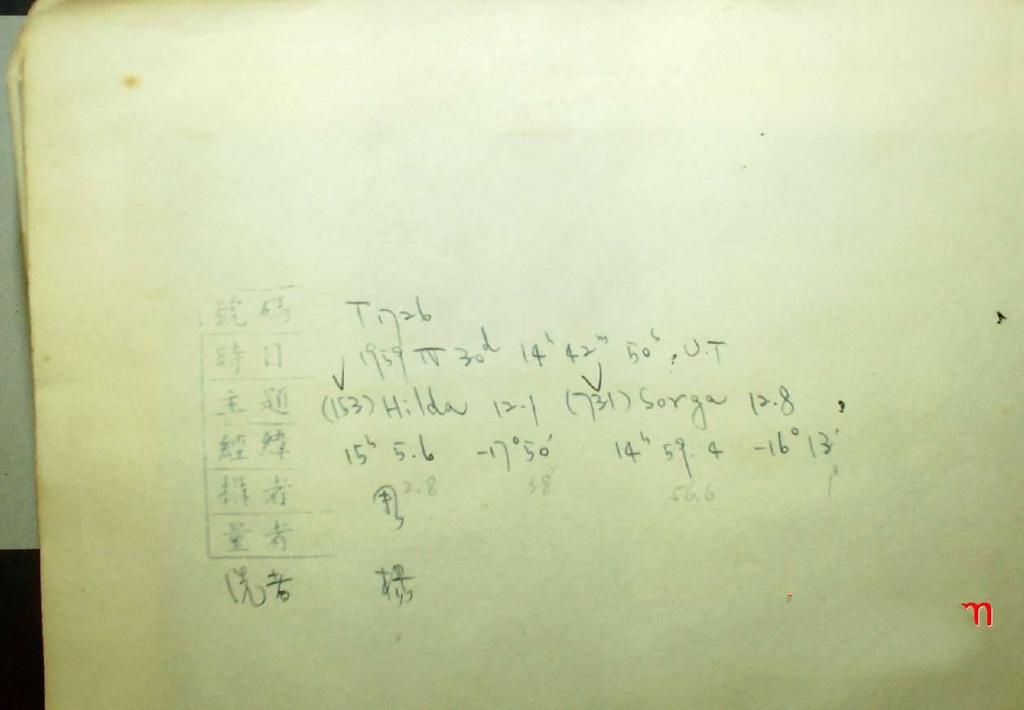 號碼 T1726
時日 1959 IV 30d 14h 42m 50s, U.T
主題 (153) Hilda 12.1 (731) Sorga 12.8
經緯 15h 5.6 -17°50' 14h 59.4 -16°13'
2.8 38 56.6 1'
量者
洗者 楊
m